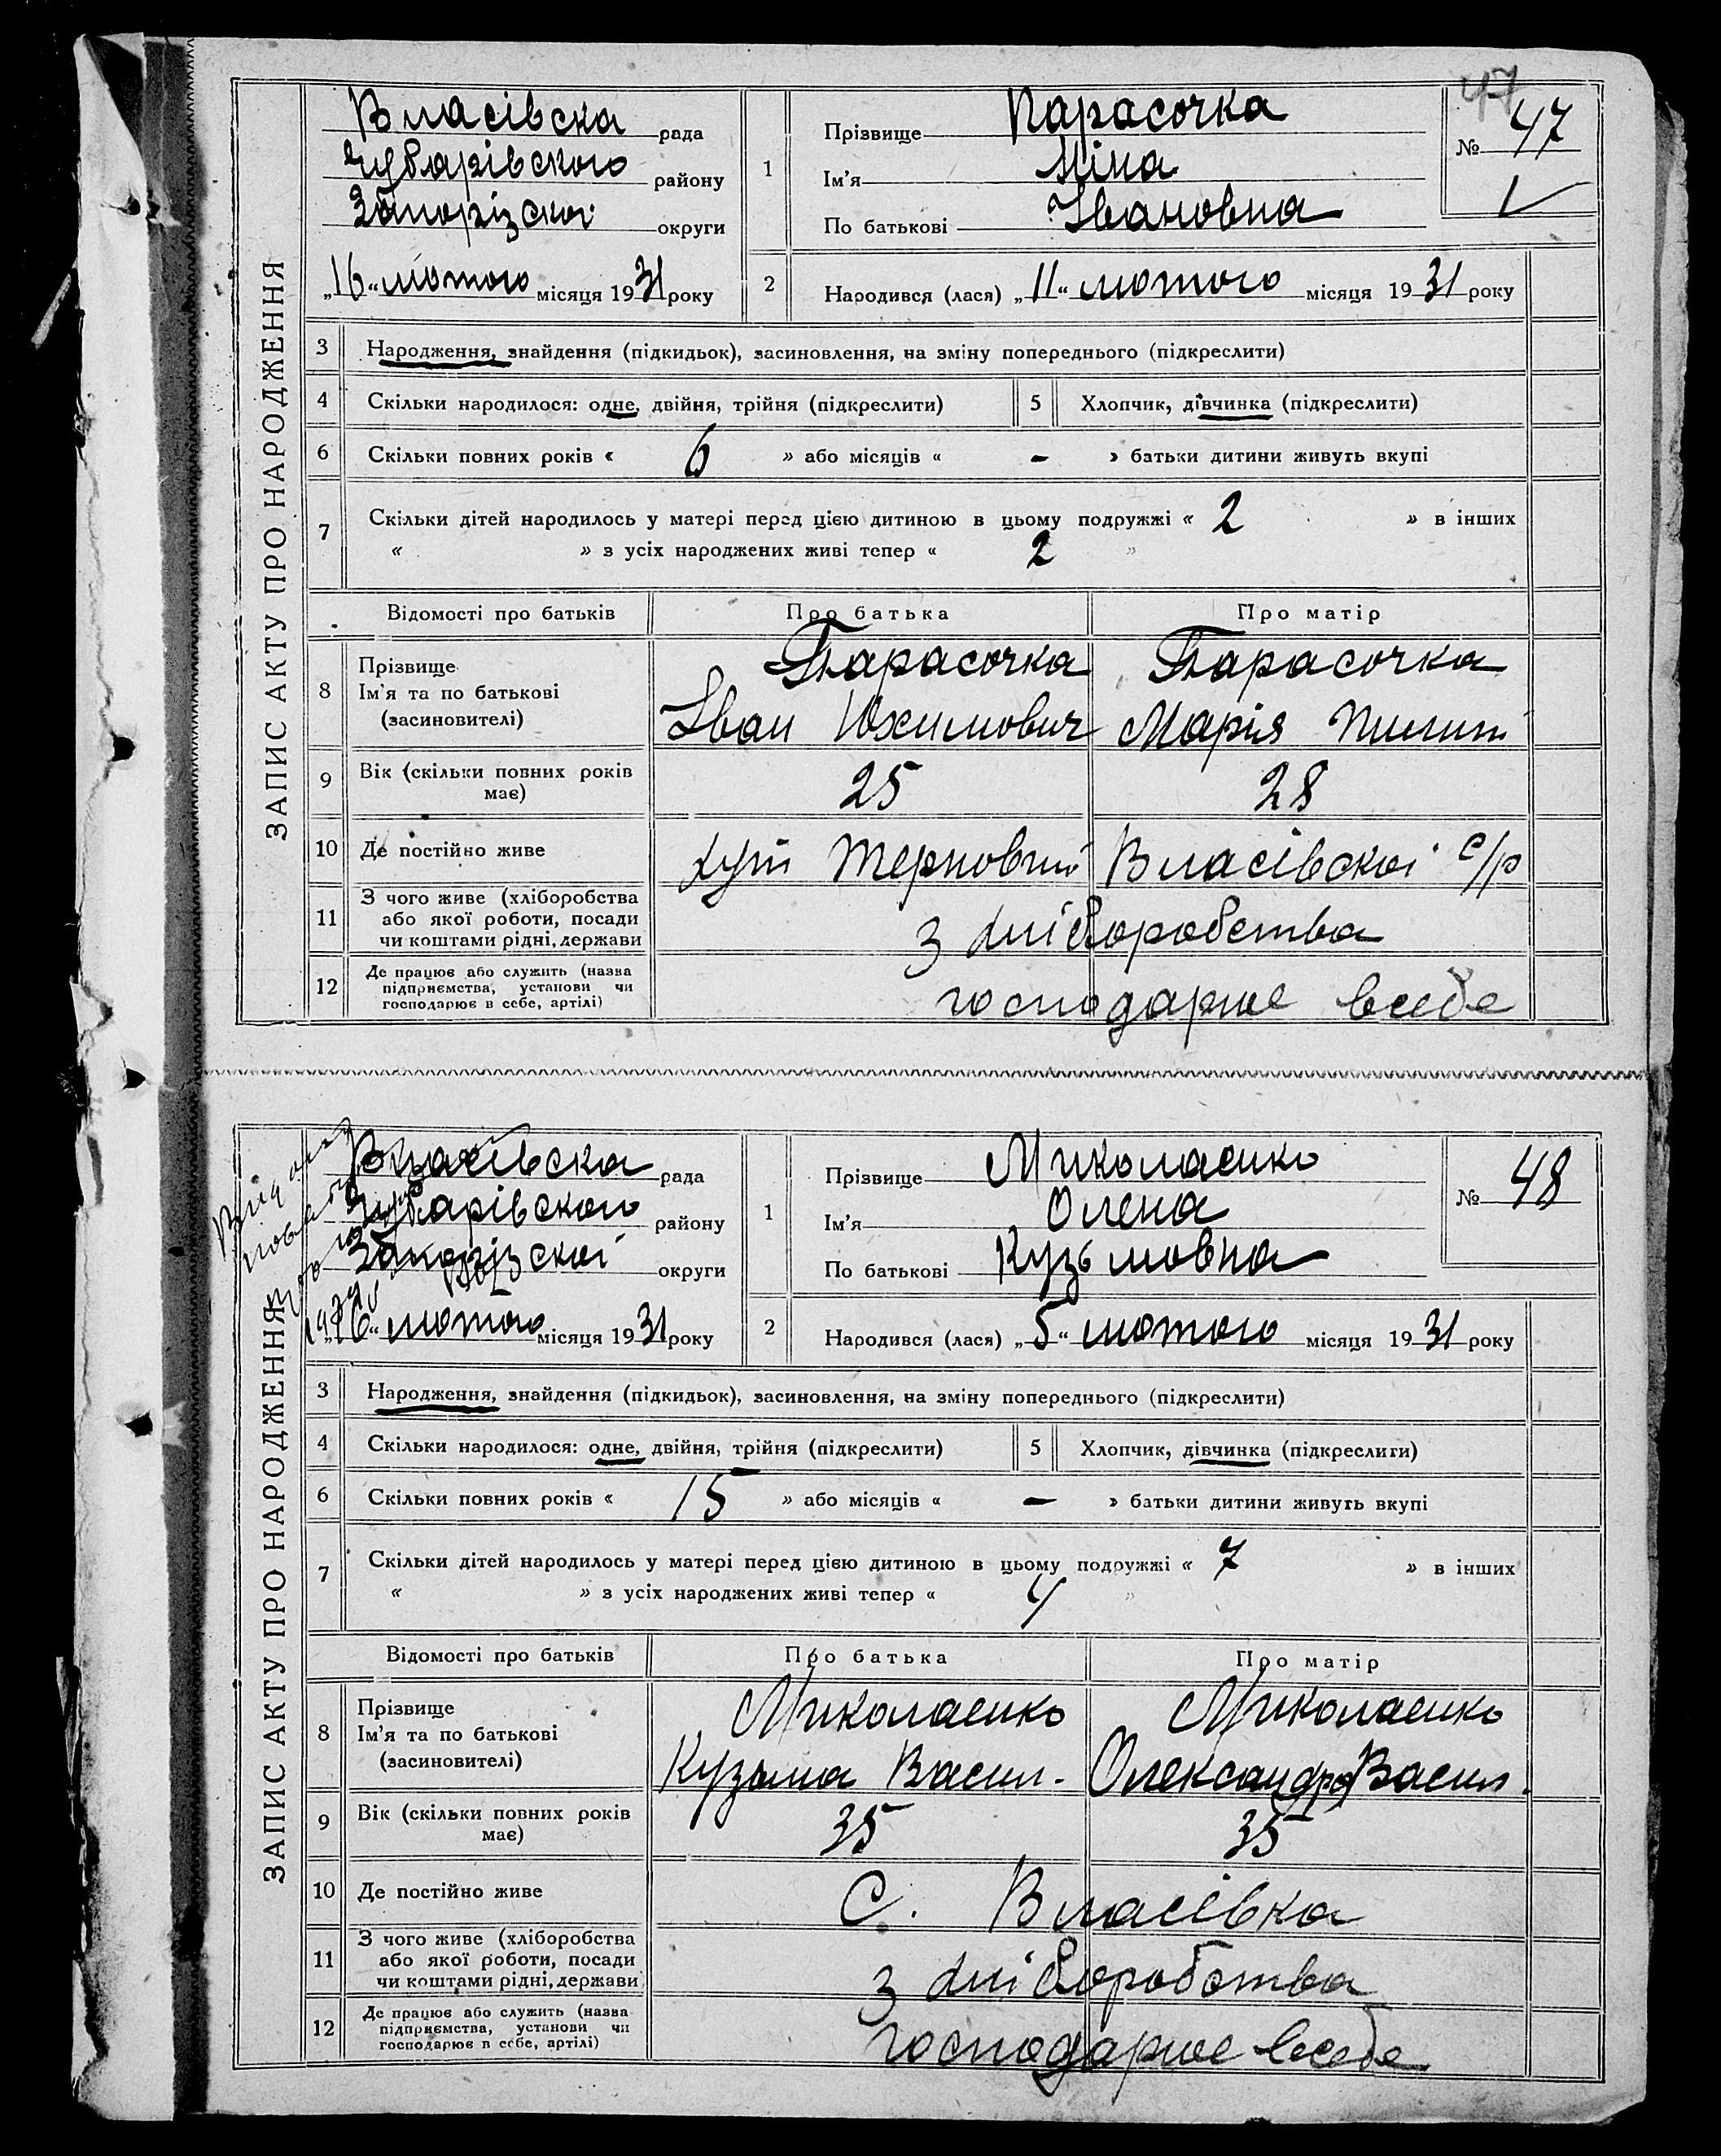 47
ЗАПИС АКТУ ПРО НАРОДЖЕННЯ
Власівска рада
Чубарівского району
Запорізскоі округи
„16" лютого місяця 1931 року
1
Прізвище Парасочка
Ім'я Ніна
По батькові Івановна
№ 47
2
Народився (лася) „11" лютого місяця 1931 року
3 Народження, знайдення (підкидьок), засиновлення, на зміну попереднього (підкреслити)
4 Скільки народилося: одне, двійня, трійня (підкреслити) 5 Хлопчик, дівчинка (підкреслити)
6 Скільки повних років « 6 » або місяців « - » батьки дитини живуть вкупі
7 Скільки дітей народилось у матері перед цією дитиною в цьому подружжі « 2 » в інших
« » з усіх народжених живі тепер « 2 »
Відомості про батьків Про батька Про матір
8 Прізвище Парасочка Парасочка
Ім'я та по батькові Іван Юхимович Марія
(засиновителі)
9 Вік (скільки повних років має) 25 28
10 Де постійно живе хут Терновий Власівскоі с/р
11 З чого живе (хліборобства
або якої роботи, посади
чи коштами рідні, держави з хліборобства
12 Де працює або служить (назва
підприємства, установи чи
господарює в себе, артілі) господарює всебе
ЗАПИС АКТУ ПРО НАРОДЖЕННЯ
Власівска рада
Чубарівского району
Запорізскоі округи
„16" лютого місяця 1931 року
1
Прізвище Миколаенко
Ім'я Олена
По батькові Кузьмовна
№ 48
2
Народився (лася) „5" лютого місяця 1931 року
3 Народження, знайдення (підкидьок), засиновлення, на зміну попереднього (підкреслити)
4 Скільки народилося: одне, двійня, трійня (підкреслити) 5 Хлопчик, дівчинка (підкреслити)
6 Скільки повних років « 15 » або місяців « - » батьки дитини живуть вкупі
7 Скільки дітей народилось у матері перед цією дитиною в цьому подружжі « 7 » в інших
« » з усіх народжених живі тепер « 4 »
Відомості про батьків Про батька Про матір
8 Прізвище Миколаенко Миколаенко
Ім'я та по батькові Кузьма Васил. Олександра Васил.
(засиновителі)
9 Вік (скільки повних років має) 35 35
10 Де постійно живе С. Власівка
11 З чого живе (хліборобства
або якої роботи, посади
чи коштами рідні, держави) з хліборобства
12 Де працює або служить (назва
підприємства, установи чи
господарює в себе, артілі) господарює всебе